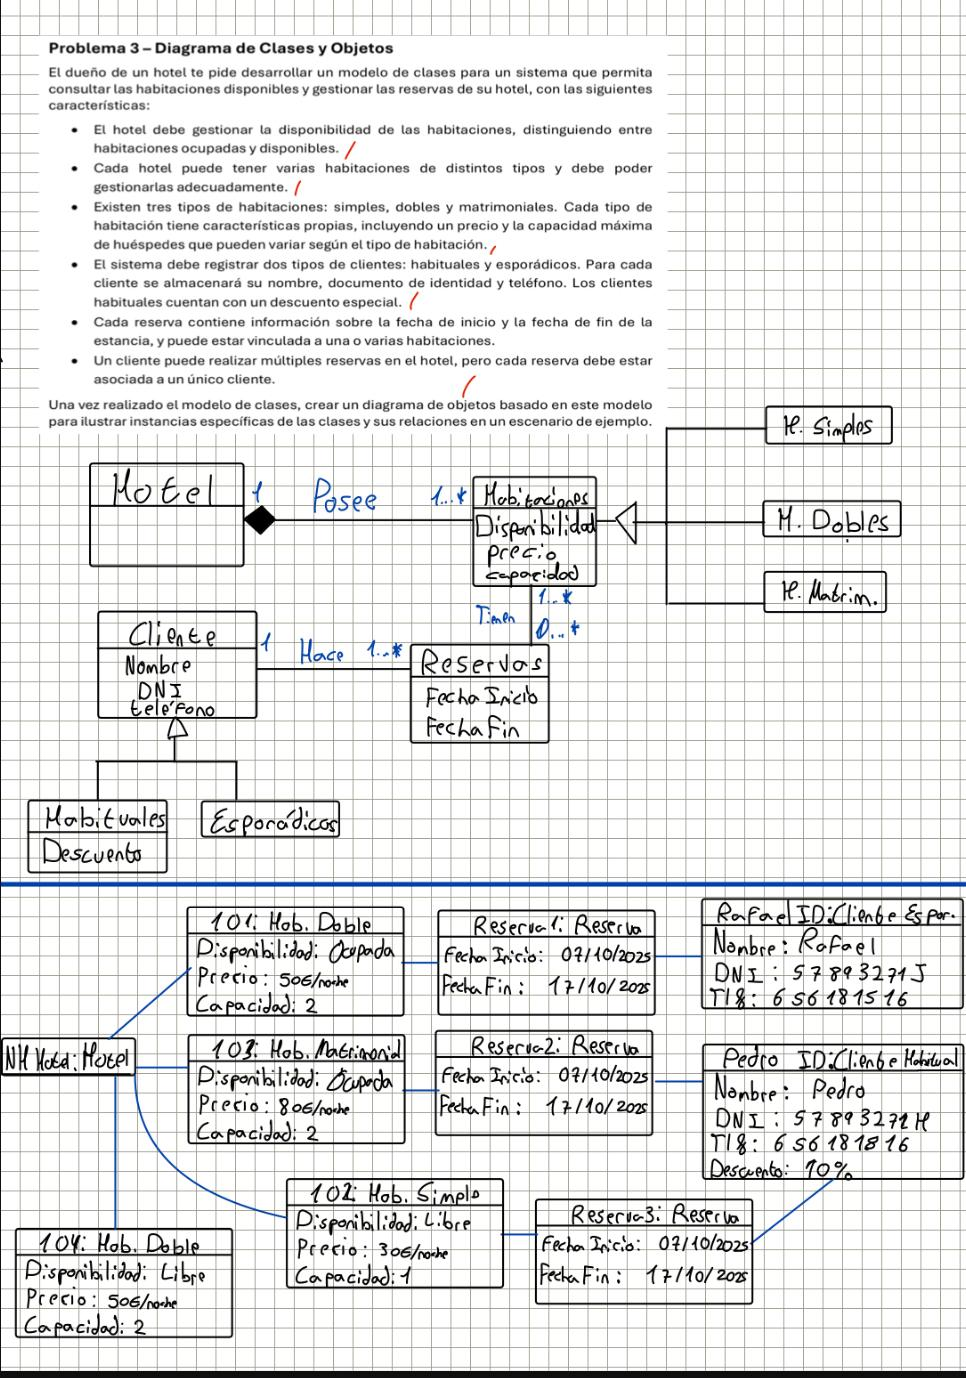 Problema 3 – Diagrama de Clases y Objetos
El dueño de un hotel te pide desarrollar un modelo de clases para un sistema que permita
consultar las habitaciones disponibles y gestionar las reservas de su hotel, con las siguientes
características:
• El hotel debe gestionar la disponibilidad de las habitaciones, distinguiendo entre
habitaciones ocupadas y disponibles.
• Cada hotel puede tener varias habitaciones de distintos tipos y debe poder
gestionarlas adecuadamente.
• Existen tres tipos de habitaciones: simples, dobles y matrimoniales. Cada tipo de
habitación tiene características propias, incluyendo un precio y la capacidad máxima
de huéspedes que pueden variar según el tipo de habitación.
• El sistema debe registrar dos tipos de clientes: habituales y esporádicos. Para cada
cliente se almacenará su nombre, documento de identidad y teléfono. Los clientes
habituales cuentan con un descuento especial.
• Cada reserva contiene información sobre la fecha de inicio y la fecha de fin de la
estancia, y puede estar vinculada a una o varias habitaciones.
• Un cliente puede realizar múltiples reservas en el hotel, pero cada reserva debe estar
asociada a un único cliente.
Una vez realizado el modelo de clases, crear un diagrama de objetos basado en este modelo
para ilustrar instancias específicas de las clases y sus relaciones en un escenario de ejemplo.
H. Simples
Hotel
1 Posee 1..*
Habitaciones
Disponibilidad
Precio
capacidad
H. Dobles
H. Matrim.
1..*
Tienen
0..*
Cliente
Nombre
DNI
teléfono
1 Hace 1..*
Reservas
Fecha Inicio
Fecha Fin
Habituales
Descuento
Esporádicos
101: Hab. Doble
Disponibilidad: Ocupada
Precio: 50€/noche
Capacidad: 2
Reserva1: Reserva
Fecha Inicio: 07/10/2025
Fecha Fin: 17/10/2025
Rafael ID:Cliente Espor.
Nombre: Rafael
DNI: 57893271J
Tlf: 656181516
NH Hotel: Hotel
103: Hab. Matrimonial
Disponibilidad: Ocupada
Precio: 80€/noche
Capacidad: 2
Reserva2: Reserva
Fecha Inicio: 07/10/2025
Fecha Fin: 17/10/2025
Pedro ID:Cliente Habitual
Nombre: Pedro
DNI: 57893272H
Tlf: 656181816
Descuento: 10%
102: Hab. Simple
Disponibilidad: Libre
Precio: 30€/noche
Capacidad: 1
Reserva3: Reserva
Fecha Inicio: 07/10/2025
Fecha Fin: 17/10/2025
104: Hab. Doble
Disponibilidad: Libre
Precio: 50€/noche
Capacidad: 2